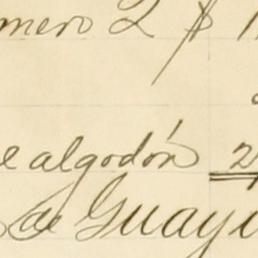 mero 2 $
e algodón 2
de Guay